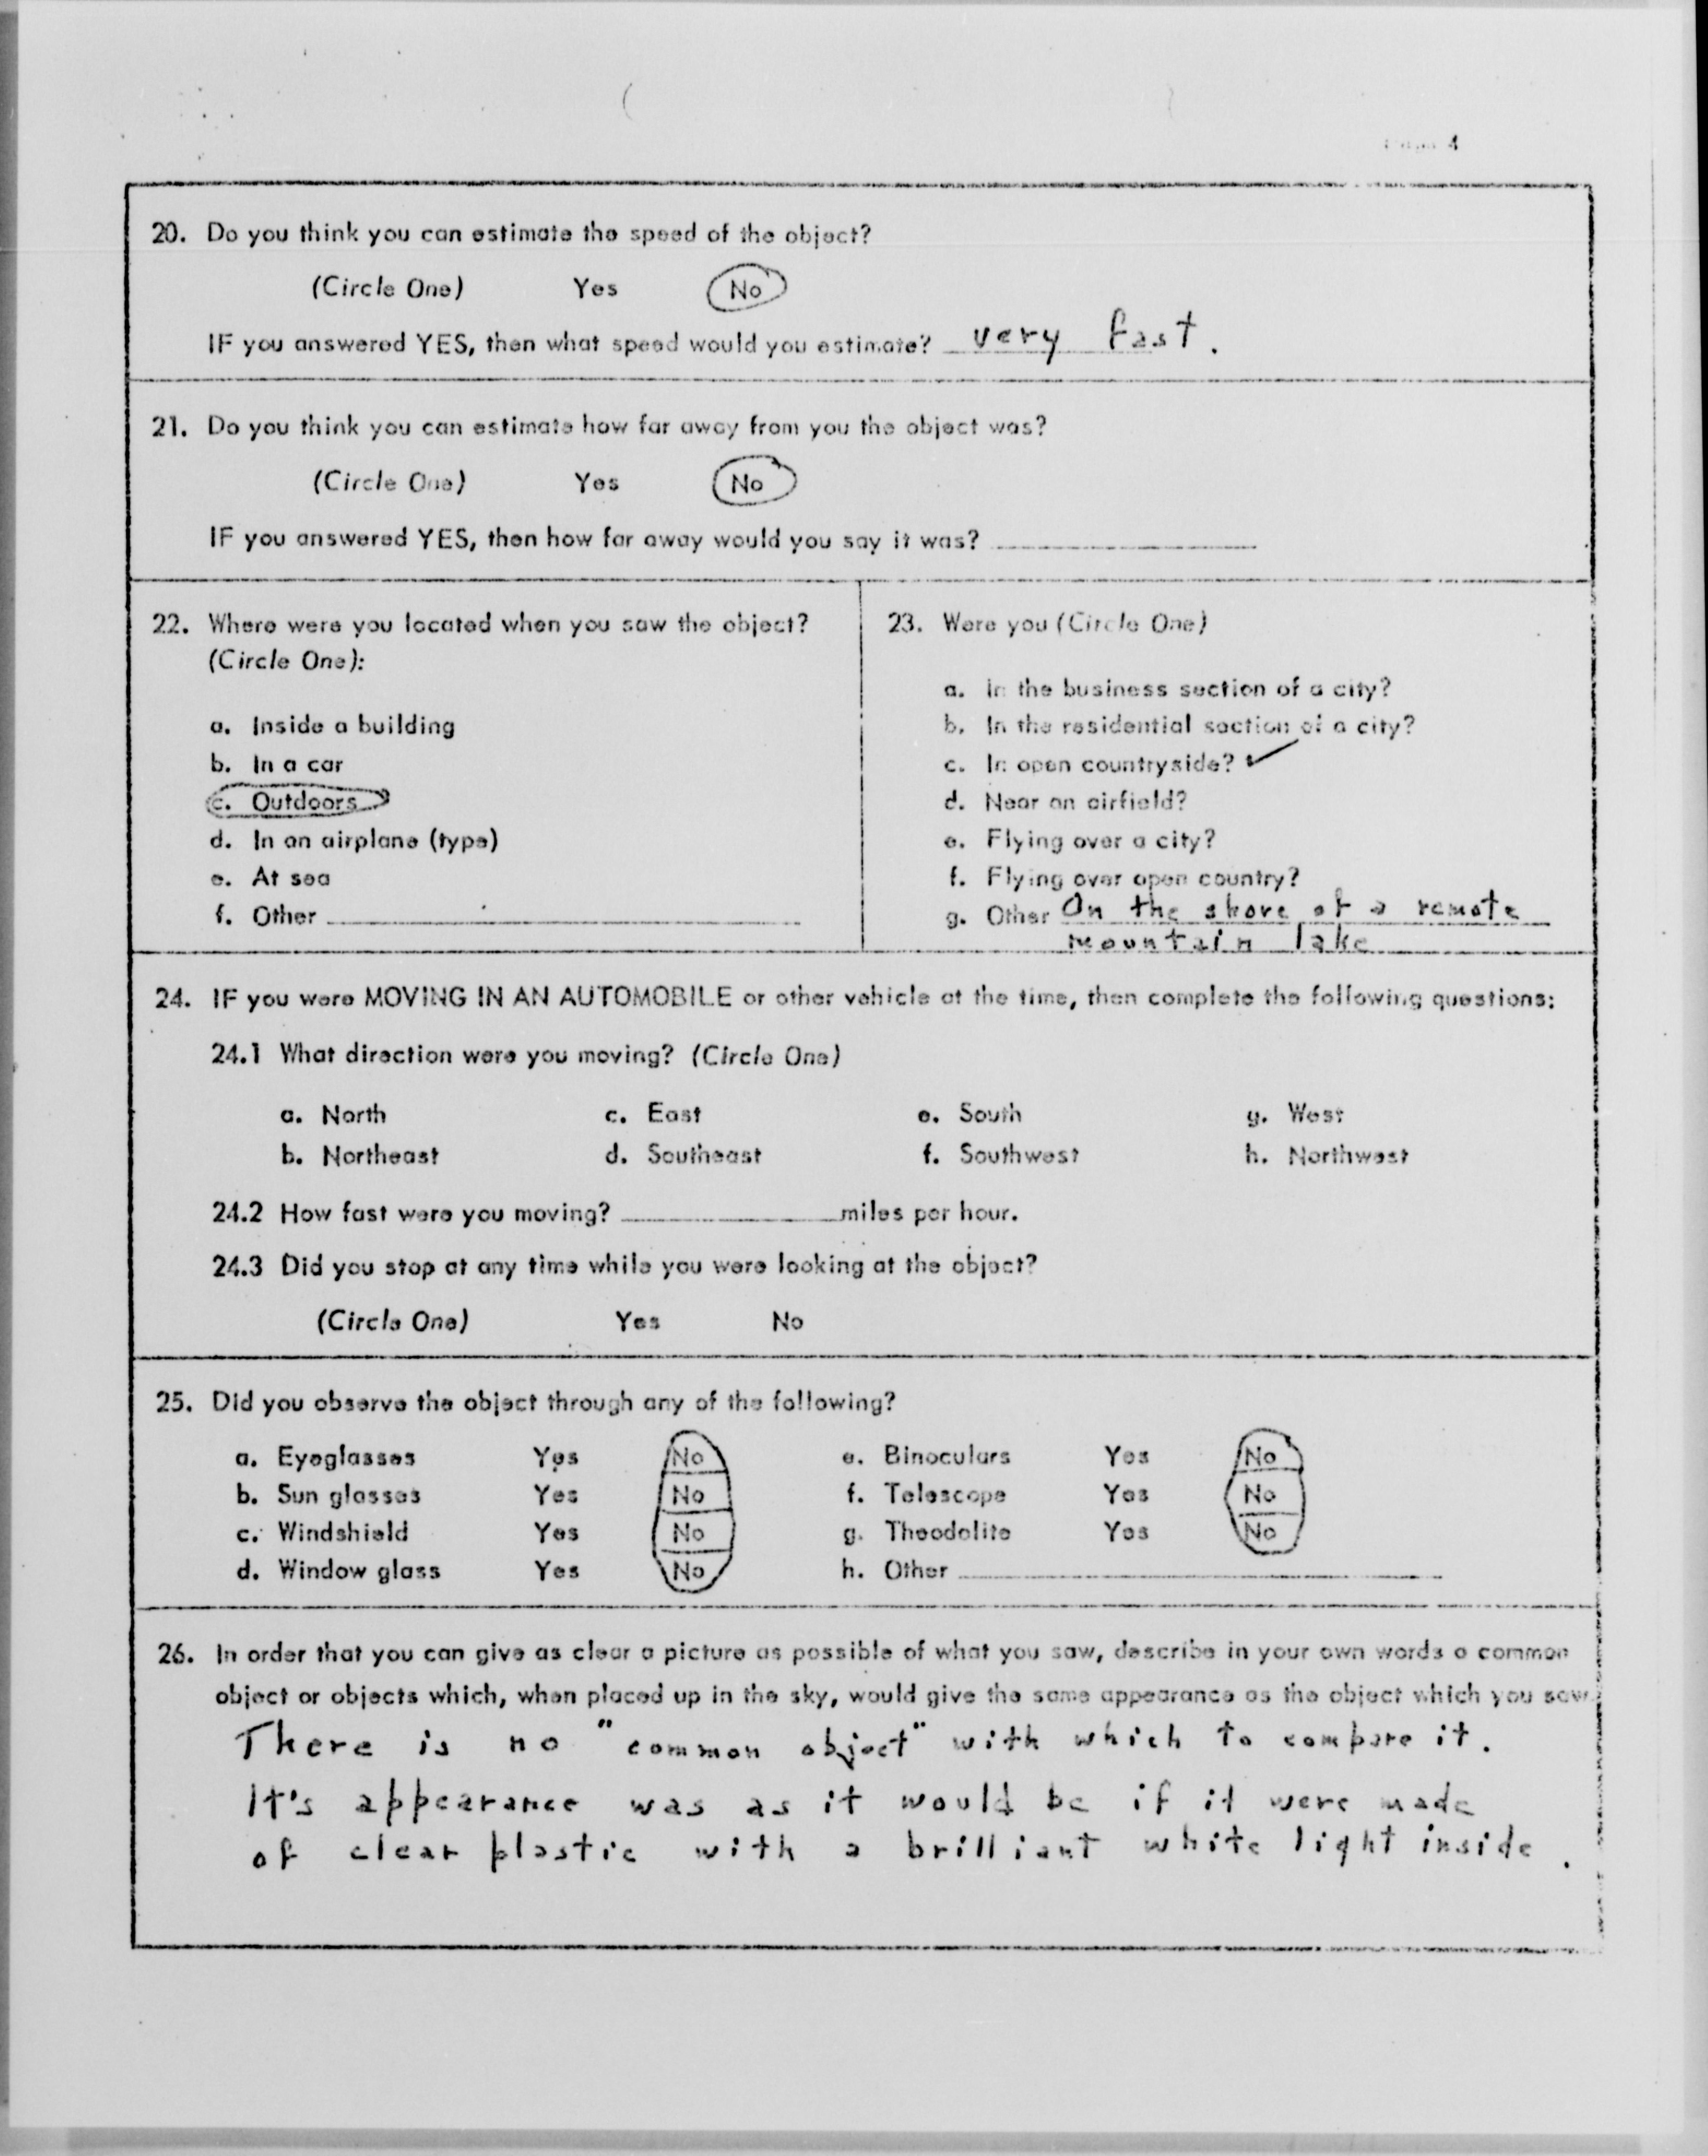 Page 4
20. Do you think you can estimate the speed of the object?
(Circle One) Yes No
IF you answered YES, then what speed would you estimate? very fast.
21. Do you think you can estimate how far away from you the object was?
(Circle One) Yes No
IF you answered YES, then how far away would you say it was?
22. Where were you located when you saw the object?
(Circle One):
a. Inside a building
b. In a car
c. Outdoors
d. In an airplane (type)
e. At sea
f. Other
23. Were you (Circle One)
a. In the business section of a city?
b. In the residential section of a city?
c. In open countryside? ✓
d. Near an airfield?
e. Flying over a city?
f. Flying over open country?
g. Other On the shore of a remote
mountain lake
24. IF you were MOVING IN AN AUTOMOBILE or other vehicle at the time, then complete the following questions:
24.1 What direction were you moving? (Circle One)
a. North c. East e. South g. West
b. Northeast d. Southeast f. Southwest h. Northwest
24.2 How fast were you moving? miles per hour.
24.3 Did you stop at any time while you were looking at the object?
(Circle One) Yes No
25. Did you observe the object through any of the following?
a. Eyeglasses Yes No e. Binoculars Yes No
b. Sun glasses Yes No f. Telescope Yes No
c. Windshield Yes No g. Theodolite Yes No
d. Window glass Yes No h. Other
26. In order that you can give as clear a picture as possible of what you saw, describe in your own words a common
object or objects which, when placed up in the sky, would give the same appearance as the object which you saw.
There is no "common object" with which to compare it.
It's appearance was as it would be if it were made
of clear plastic with a brilliant white light inside.